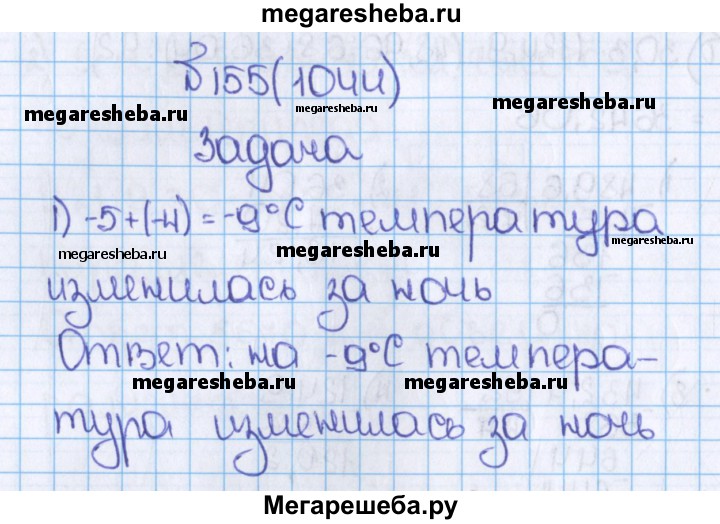 megaresheba.ru
В 155(1044)
megaresheba.ru megaresheba.ru megaresheba.ru
Задача
1) -5+(-4) = -9°С температура
megaresheba.ru megaresheba.ru megaresheba.ru
изменилась за ночь
Ответ: на -9°С темпера-
megaresheba.ru megaresheba.ru
тура изменилась за ночь
Мегарешеба.ру